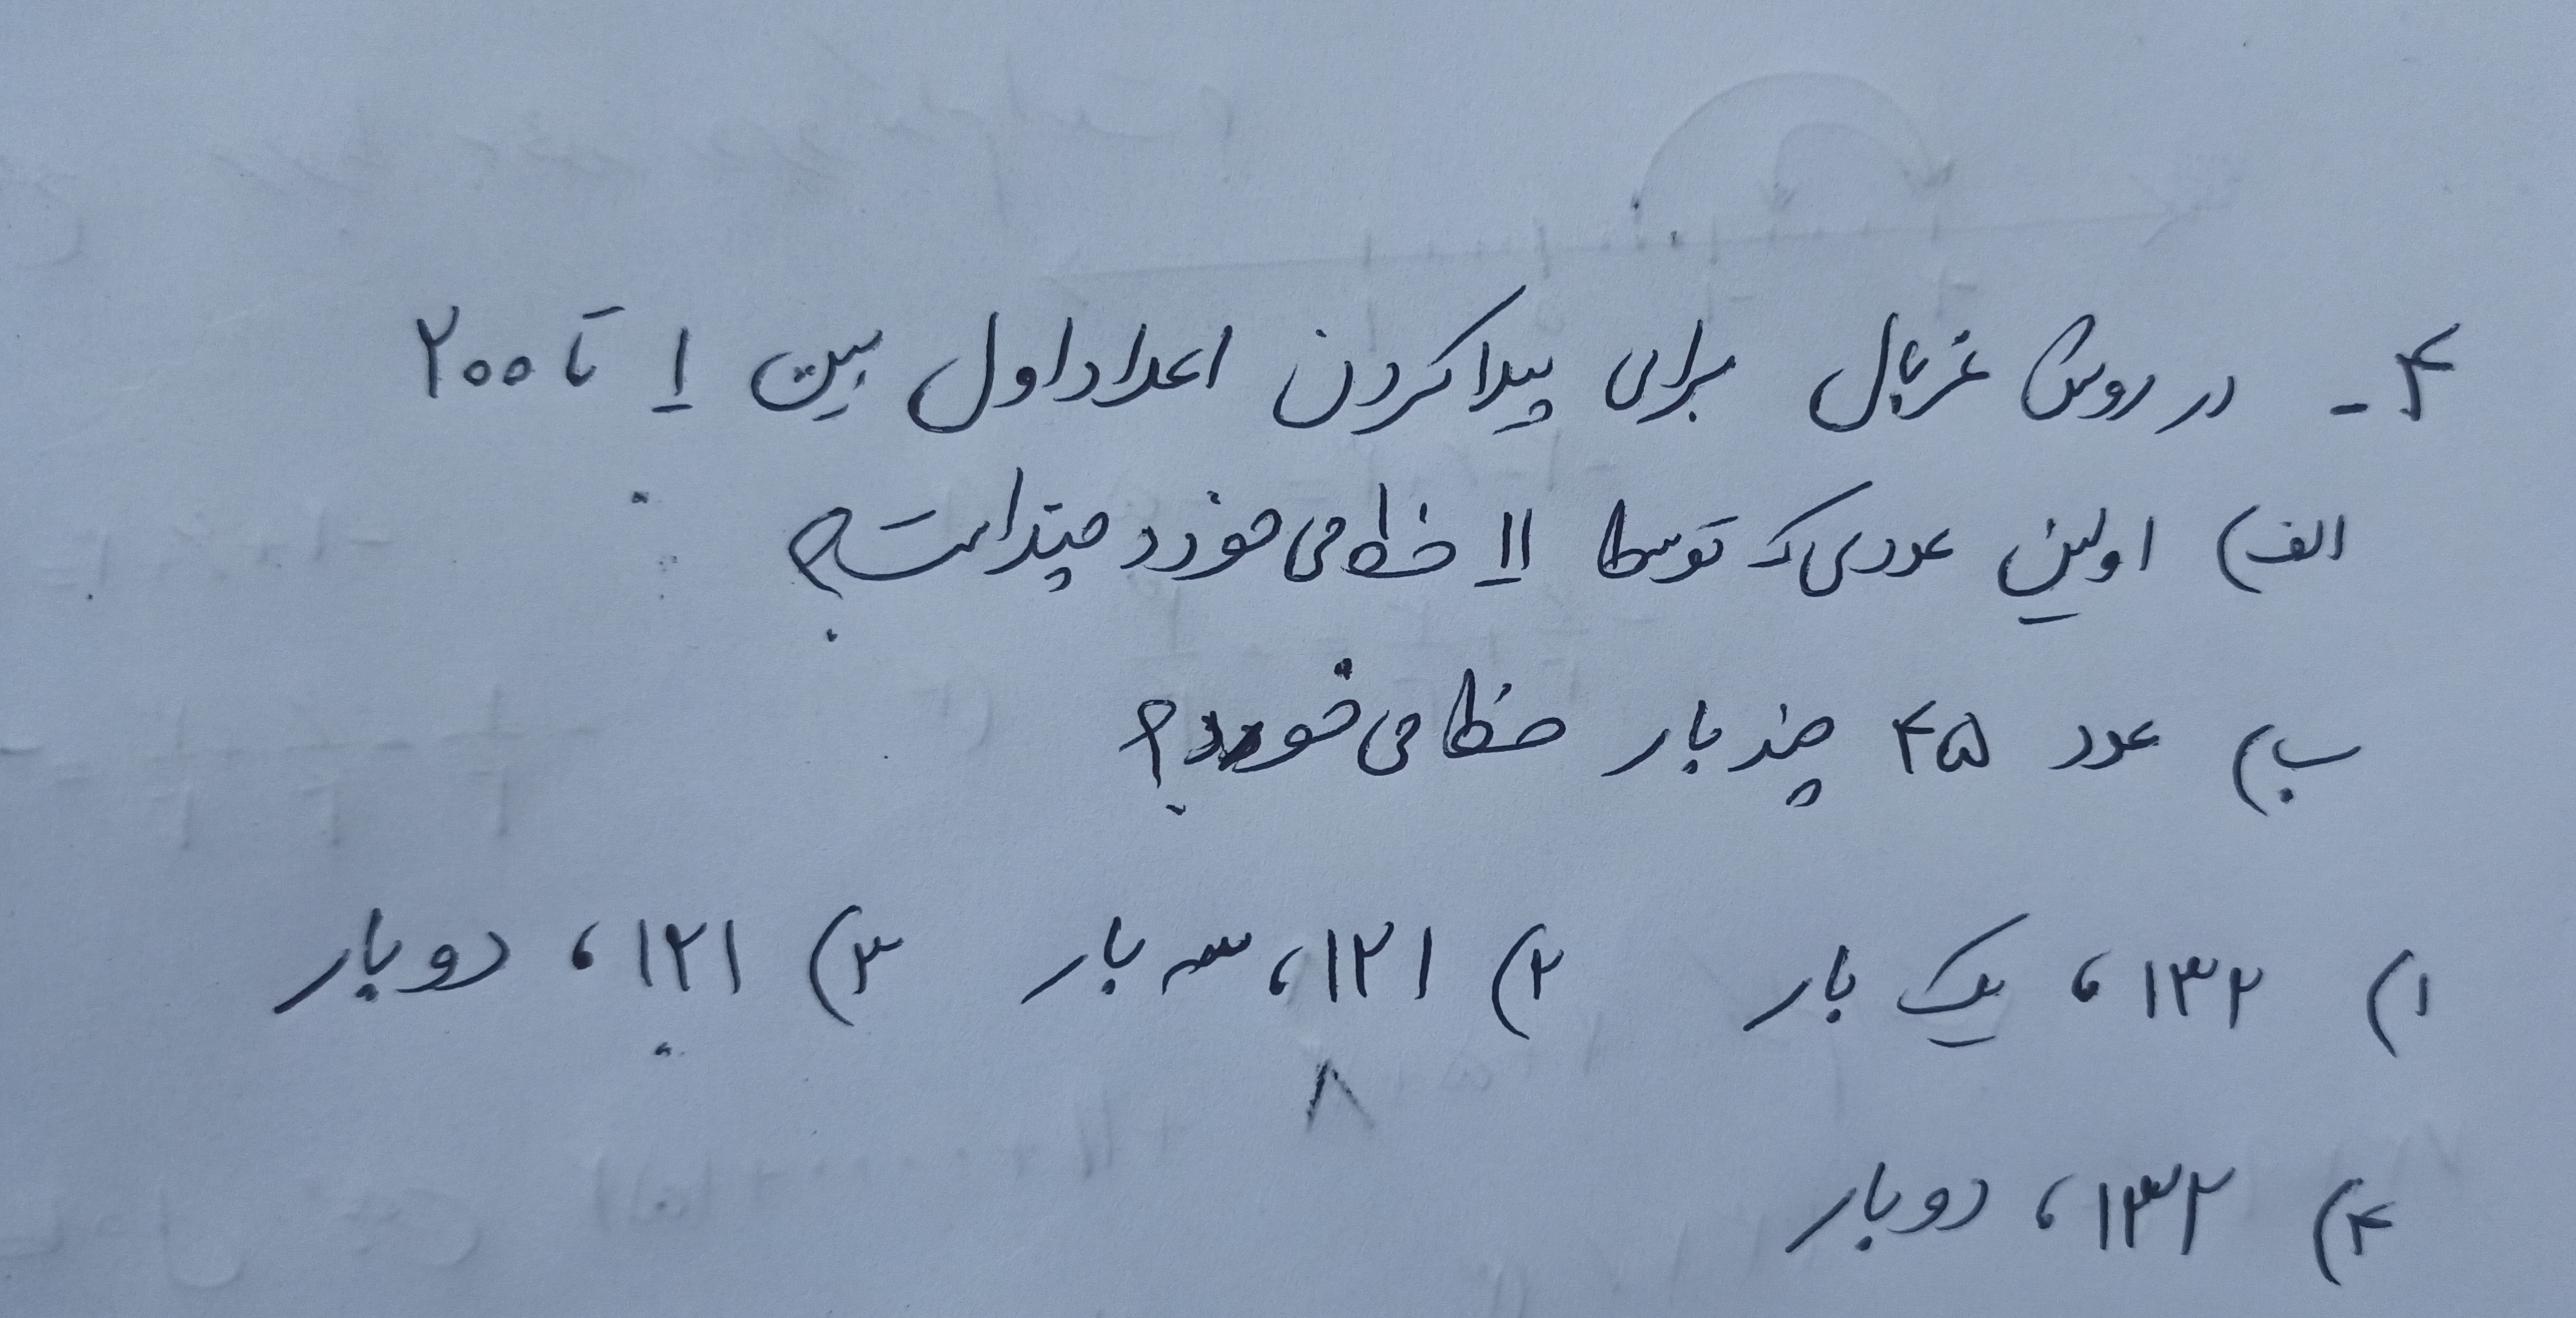 ۴- در روش غربال برای پیدا کردن اعداد اول بین ۱ تا ۲۰۰
الف) اولین عددی که توسط ۱۱ خط می خورد چند است؟
ب) عدد ۴۵ چند بار خط می خورد؟
۱) ۱۳۲، یک بار ۲) ۱۲۱، سه بار ۳) ۱۲۱، دو بار
۸
۴) ۱۳۲، دو بار